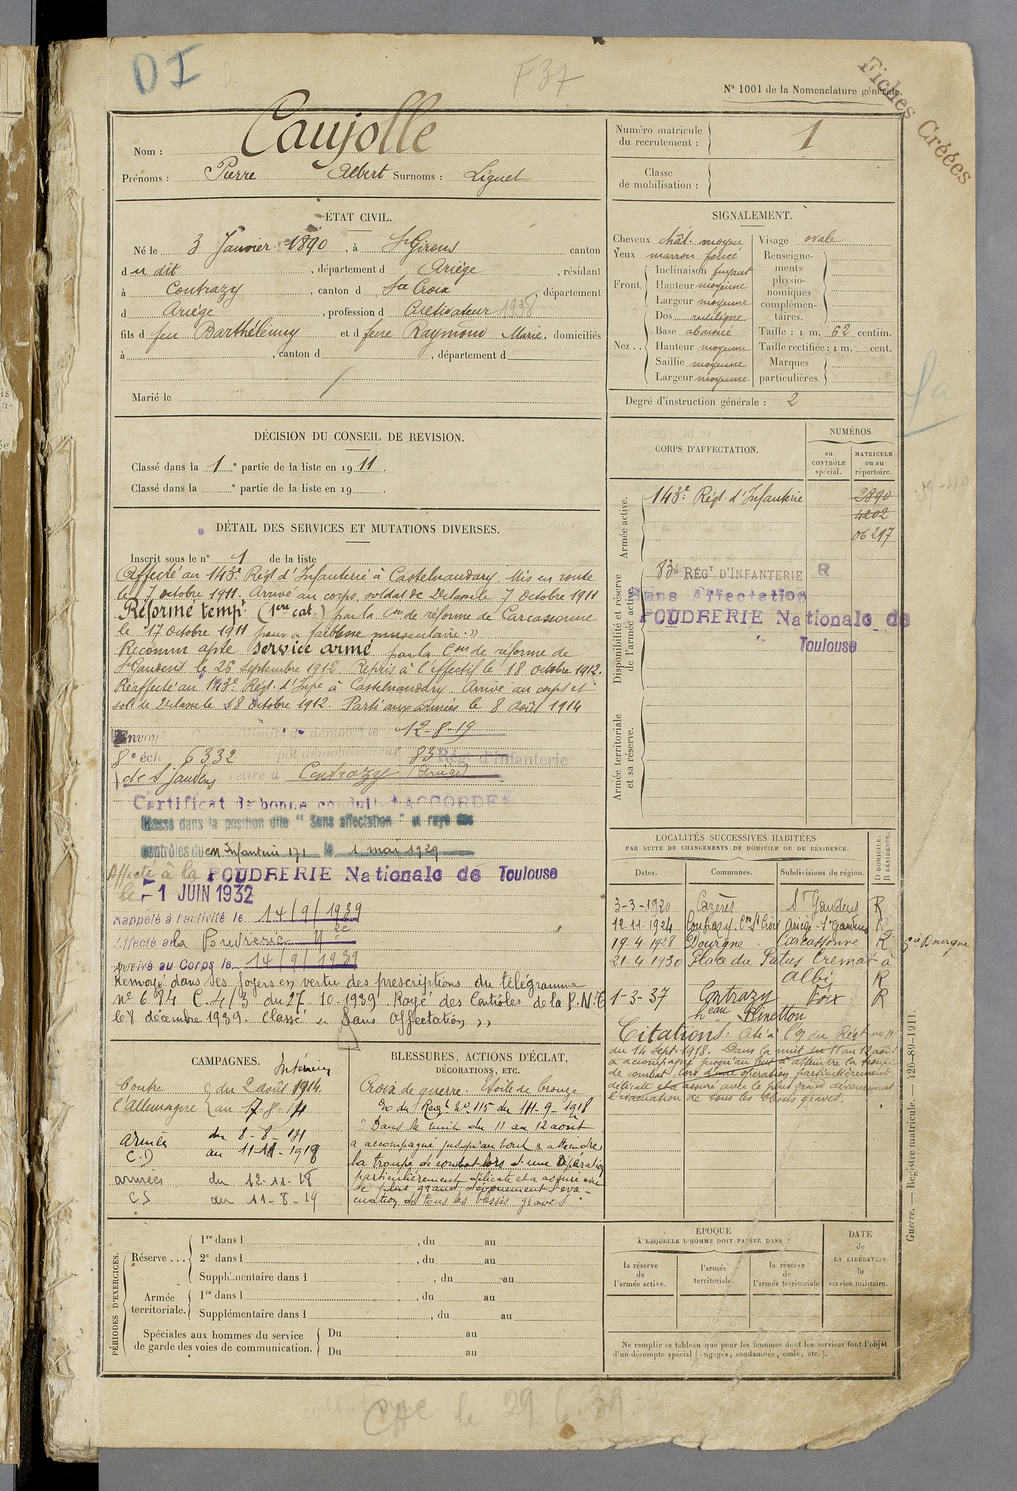 DI
F37
N° 1001 de la Nomenclature générale.
Fiches Créées
Nom : Caujolle
Prénoms : Pierre Albert Surnoms : Liguet
Numéro matricule du recrutement : 1
Classe de mobilisation :
ETAT CIVIL.
Né le 3 Janvier 1890, à St Girons canton
du dit, département d Ariège, résidant
à Contrazy, canton d Ste Croix, département
d Ariège, profession d Cultivateur 1938
fils d feu Barthélémy et d feue Raymond Marie, domiciliés
à , canton d , département d
Marié le
SIGNALEMENT.
Cheveux chât. moyen
Yeux marron foncé
Front. Inclinaison fuyant
Hauteur moyenne
Largeur moyenne
Nez. Dos rectiligne
Base abaissé
Hauteur moyenne
Saillie moyenne
Largeur moyenne
Visage ovale
Renseignements physionomiques complémentaires.
Taille : 1 m. 62 centim.
Taille rectifiée : 1 m. cent.
Marques particulières.
Degré d'instruction générale : 2
DÉCISION DU CONSEIL DE REVISION.
Classé dans la 1e partie de la liste en 1911.
Classé dans la e partie de la liste en 19 .
CORPS D'AFFECTATION.
NUMÉROS
au CONTRÔLE spécial.
MATRICULE ou au répertoire.
Armée active.
143e Régt d'Infanterie 2890
4202
06217
Disponibilité et réserve de l'armée active.
83e RÉGT D'INFANTERIE R
Sans affectation
POUDRERIE Nationale de Toulouse
Armée territoriale et sa réserve.
DÉTAIL DES SERVICES ET MUTATIONS DIVERSES.
Inscrit sous le n° 1 de la liste
Affecté au 143e Régt d'Infanterie à Castelnaudary. Mis en route
le 7 octobre 1911. Arrivé au corps, soldat de 2e classe le 7 octobre 1911
Réformé tempe (1ère cat.) par la Con de réforme de Carcassonne
le 17 octobre 1911 pour « faiblesse musculaire. »
Reconnu apte service armé par la Con de réforme de
St Gaudens le 26 septembre 1912. Repris à l'effectif le 18 octobre 1912.
Réaffecté au 143e Régt d'Infie à Castelnaudary. Arrivé au corps et
solt de 2e classe le 8 octobre 1912. Parti aux armées le 8 août 1914
Envoyé 12-8-19
8e éch. 6332 83 Rég. d'Infanterie
de St Gaudens Contrazy (Ariège)
Certificat de bonne conduite ACCORDÉ
Classé dans la position dite "Sans affectation" et rayé des
contrôles du cm Infanterie 171 le 1 mai 1929
Affecté à la POUDRERIE Nationale de Toulouse
le 1 JUIN 1932
Rappelé à l'activité le 14/9/1939
Affecté à la Poudrerie Nle
Arrivé au Corps le 14/9/1939
Renvoyé dans ses foyers en vertu des prescriptions du télégramme
n° 6884 C.4/3 du 27-10-1939. Rayé des Contrôles de la P.N.T.
le 8 décembre 1939. Classé « Sans affectation »
LOCALITÉS SUCCESSIVES HABITÉES
PAR SUITE DE CHANGEMENTS DE DOMICILE OU DE RÉSIDENCE.
Dates. Communes. Subdivisions de région. D domicile. R résidence.
3-3-1920 Cazères St Gaudens R
12.11.1924 Contrazy Con Ste Croix Ariège St Gaudens R
19.4.1928 Dourgne Carcassonne R
21.4.1930 Place du Palus Cremat à Albi R
1-3-37 Contrazy Foix R
heau Rinetton
Citations : Cité à l'O du Régt n° 115
du 14 Sept. 1918. Dans la nuit du 11 au 12 août
a accompagné jusqu'au bout
de combat, lors d'une opération particulièrement
délicate et a assuré avec le plus grand dévouement
l'évacuation de tous les blessés graves.
CAMPAGNES.
Contre l'Allemagne
Intérieur
du 2 août 1914
au 7-8-14
armées C.D
du 8-8-14
au 11-11-1918
armées C.S
du 12-11-18
au 11-8-19
BLESSURES, ACTIONS D'ÉCLAT,
DÉCORATIONS, ETC.
Croix de guerre. Etoile de bronze
O. du Régt N° 115 du 14-9-1918
"Dans la nuit du 11 au 12 août
a accompagné jusqu'au bout
la troupe de combat lors d'une opération
particulièrement délicate et a assuré avec
le plus grand dévouement l'éva-
cuation de tous les blessés graves".
PÉRIODES D'EXERCICES.
Réserve... 1re dans l , du au
2e dans l , du au
Supplémentaire dans l , du au
Armée territoriale. 1re dans l , du au
Supplémentaire dans l , du au
Spéciales aux hommes du service de garde des voies de communication. Du au
Du au
ÉPOQUE
À LAQUELLE L'HOMME DOIT PASSER DANS :
la réserve de l'armée active.
l'armée territoriale.
la réserve de l'armée territoriale
DATE de LA LIBÉRATION du service militaire.
Ne remplir ce tableau que pour les hommes dont les services font l'objet
d'un décompte spécial (engagés, condamnés, omis, etc.).
Guerre. — Registre matricule. — 426-89-1911.
le 29.6.39